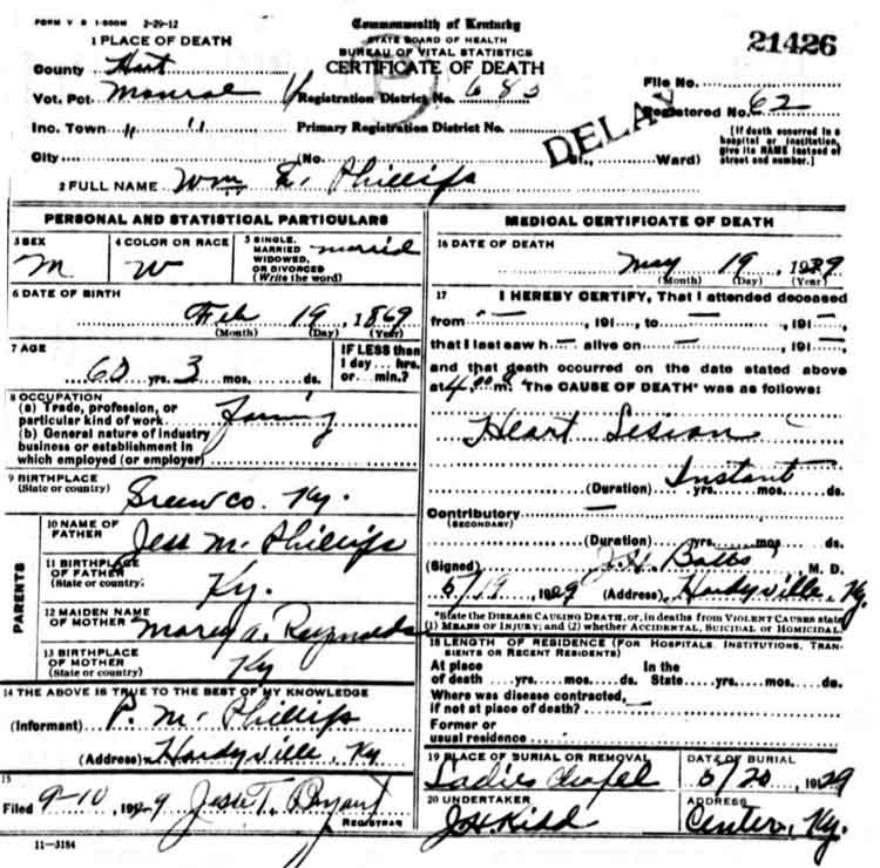 FORM V S 1-500M 2-29-12
Commonwealth of Kentucky
STATE BOARD OF HEALTH
BUREAU OF VITAL STATISTICS
CERTIFICATE OF DEATH
21426
1 PLACE OF DEATH
County Hart
Vot. Pct. Monroe
Registration District No. 683
File No.
Registered No. 62
Inc. Town " "
Primary Registration District No.
DELAY
[If death occurred in a hospital or institution, give its NAME instead of street and number.]
City (No. St., Ward)
2 FULL NAME Wm E. Phillips
PERSONAL AND STATISTICAL PARTICULARS
3 SEX M
4 COLOR OR RACE W
5 SINGLE, MARRIED WIDOWED, OR DIVORCED (Write the word) married
6 DATE OF BIRTH
Feb 19, 1869
(Month) (Day) (Year)
7 AGE
60 yrs. 3 mos. ds.
IF LESS than 1 day ... hrs. or ... min.?
8 OCCUPATION
(a) Trade, profession, or particular kind of work Farming
(b) General nature of industry business or establishment in which employed (or employer)
9 BIRTHPLACE
(State or country) Green co. Ky.
PARENTS
10 NAME OF FATHER Jess M. Phillips
11 BIRTHPLACE OF FATHER (State or country) Ky.
12 MAIDEN NAME OF MOTHER Marey A. Reynolds
13 BIRTHPLACE OF MOTHER (State or country) Ky
14 THE ABOVE IS TRUE TO THE BEST OF MY KNOWLEDGE
(Informant) P. M. Phillips
(Address) Hardyville, Ky
15
Filed 9-10, 1929 Jesse T. Bryant
REGISTRAR
11-3184
MEDICAL CERTIFICATE OF DEATH
16 DATE OF DEATH
May 19, 1929
(Month) (Day) (Year)
17 I HEREBY CERTIFY, That I attended deceased
from —, 191..., to —, 191...,
that I last saw h— alive on —, 191—,
and that death occurred on the date stated above
at 4.00 m. The CAUSE OF DEATH* was as follows:
Heart Lesion
Instant
(Duration) yrs. mos. ds.
Contributory —
(SECONDARY)
(Duration) yrs. mos. ds.
(Signed) J. H. Batts, M. D.
5/19, 1929 (Address) Hardyville, Ky.
*State the DISEASE CAUSING DEATH, or, in deaths from VIOLENT CAUSES state
(1) MEANS OF INJURY; and (2) whether ACCIDENTAL, SUICIDAL or HOMICIDAL.
18 LENGTH OF RESIDENCE (FOR HOSPITALS, INSTITUTIONS, TRANSIENTS OR RECENT RESIDENTS)
At place of death ... yrs. ... mos. ... ds. In the State ... yrs. ... mos. ... ds.
Where was disease contracted, if not at place of death?
Former or usual residence
19 PLACE OF BURIAL OR REMOVAL Ladies chapel
DATE OF BURIAL 5/20, 1929
20 UNDERTAKER J.H. Kidd
ADDRESS Center, Ky.